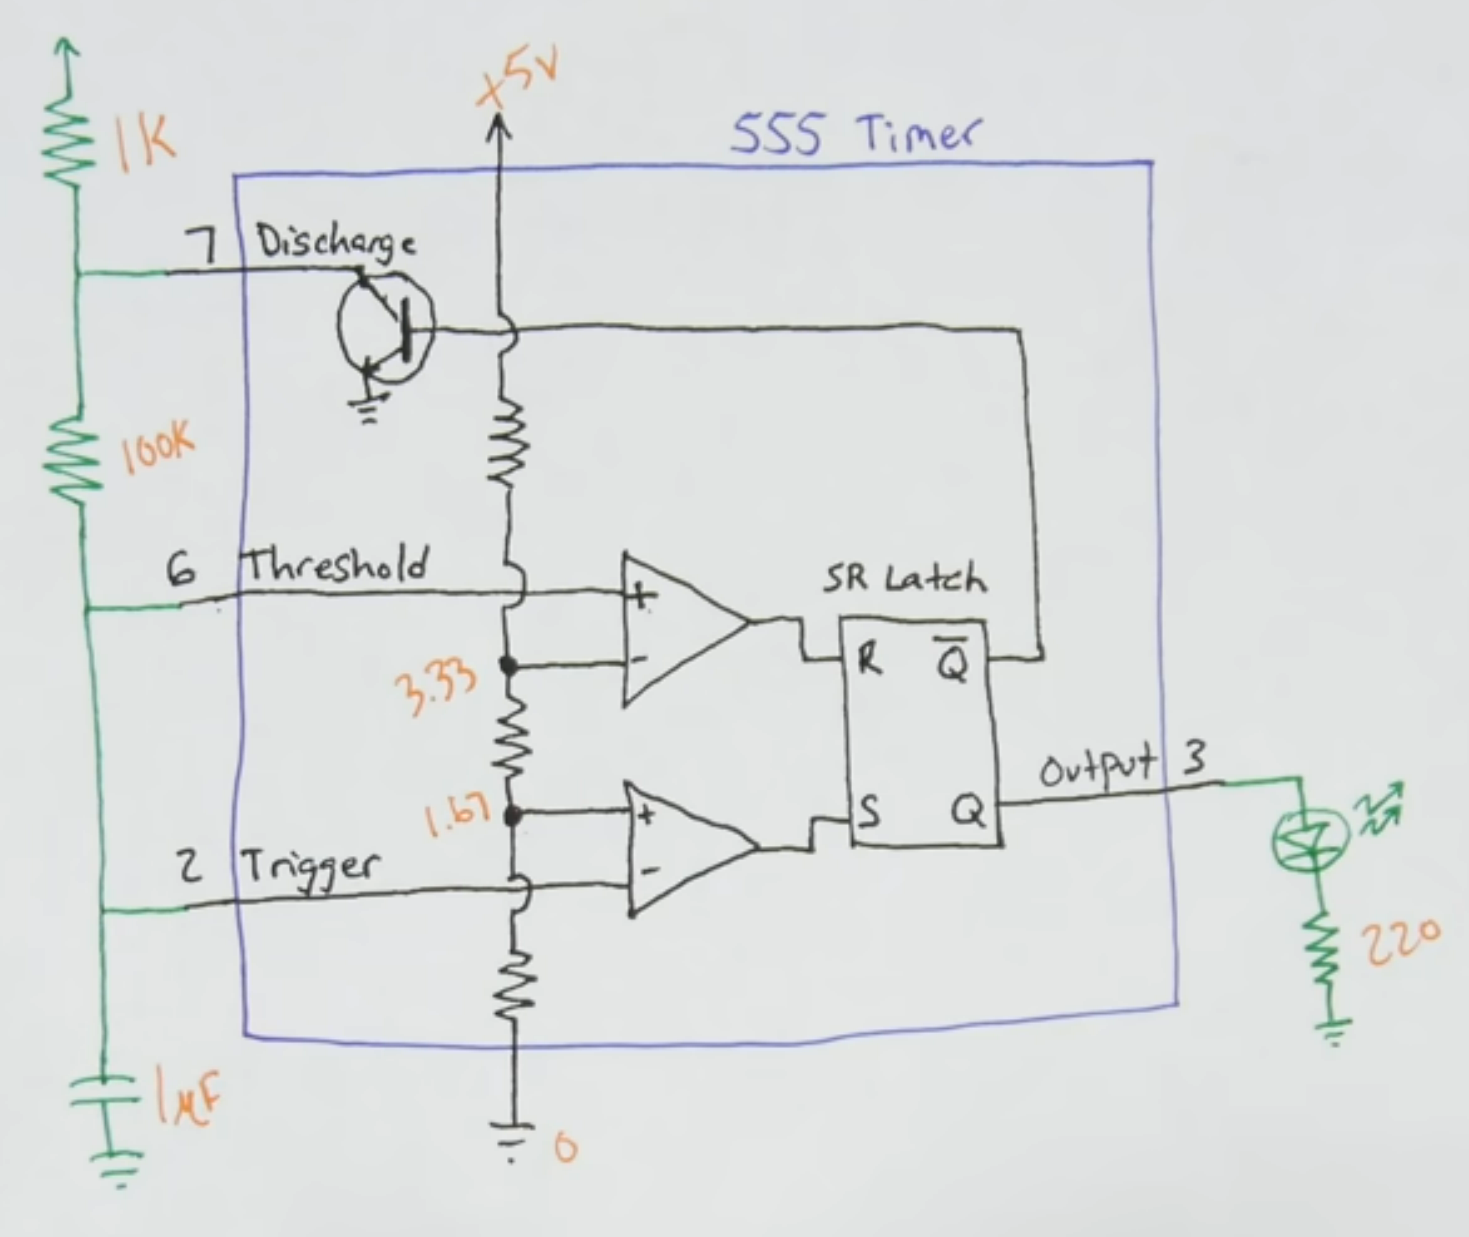 +5V
555 Timer
1K
7 Discharge
100K
6 Threshold
+
SR Latch
-
R Q̅
3.33
Output 3
1.67
+
S Q
2 Trigger
-
220
1µF
0